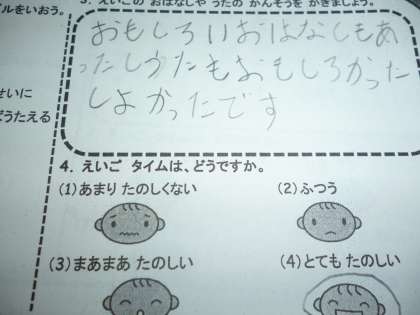 ルをいおう。
3. えいごの おはなしや うたの かんそうを かきましょう。
おもしろいおはなしもあ
ったしうたもおもしろかった
しよかったです
せいに
うたえる
4. えいご タイムは、どうですか。
(1)あまり たのしくない
(2)ふつう
(3)まあまあ たのしい
(4)とても たのしい